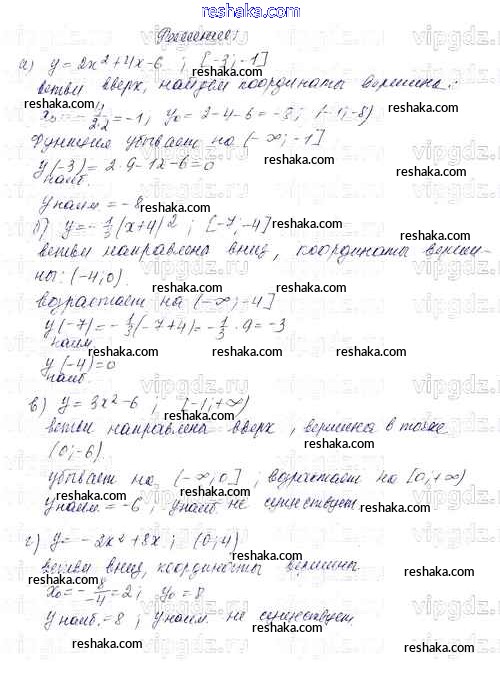 www.reshaka.com
Решение:
а) y = 2x² + 4x - 6 ; [-3; -1]
ветви вверх, найдем координаты вершины:
x₀ = -4/2·2 = -1, y₀ = 2 - 4 - 6 = -8; (-1; -8)
Функция убывает на (-∞; -1]
y(-3) = 2·9 - 12 - 6 = 0
наиб.
y наим. = -8
б) y = -1/3(x+4)² ; [-7; -4]
ветви направлены вниз, координаты верши-
ны: (-4; 0).
возрастает на (-∞; -4]
y(-7) = -1/3(-7+4) = -1/3 · 9 = -3
наим.
y(-4) = 0
наиб.
в) y = 3x² - 6 ; [-1; +∞)
ветви направлены вверх, вершина в точке
(0; -6).
убывает на (-∞; 0] ; возрастает на [0; +∞)
y наим = -6 ; y наиб не существует
г) y = -2x² + 8x ; (0; 4)
ветви вниз, координаты вершины
x₀ = -8/-4 = 2 ; y₀ = 8
y наиб. = 8 ; y наим. не существует.
reshaka.com
vipgdz.ru